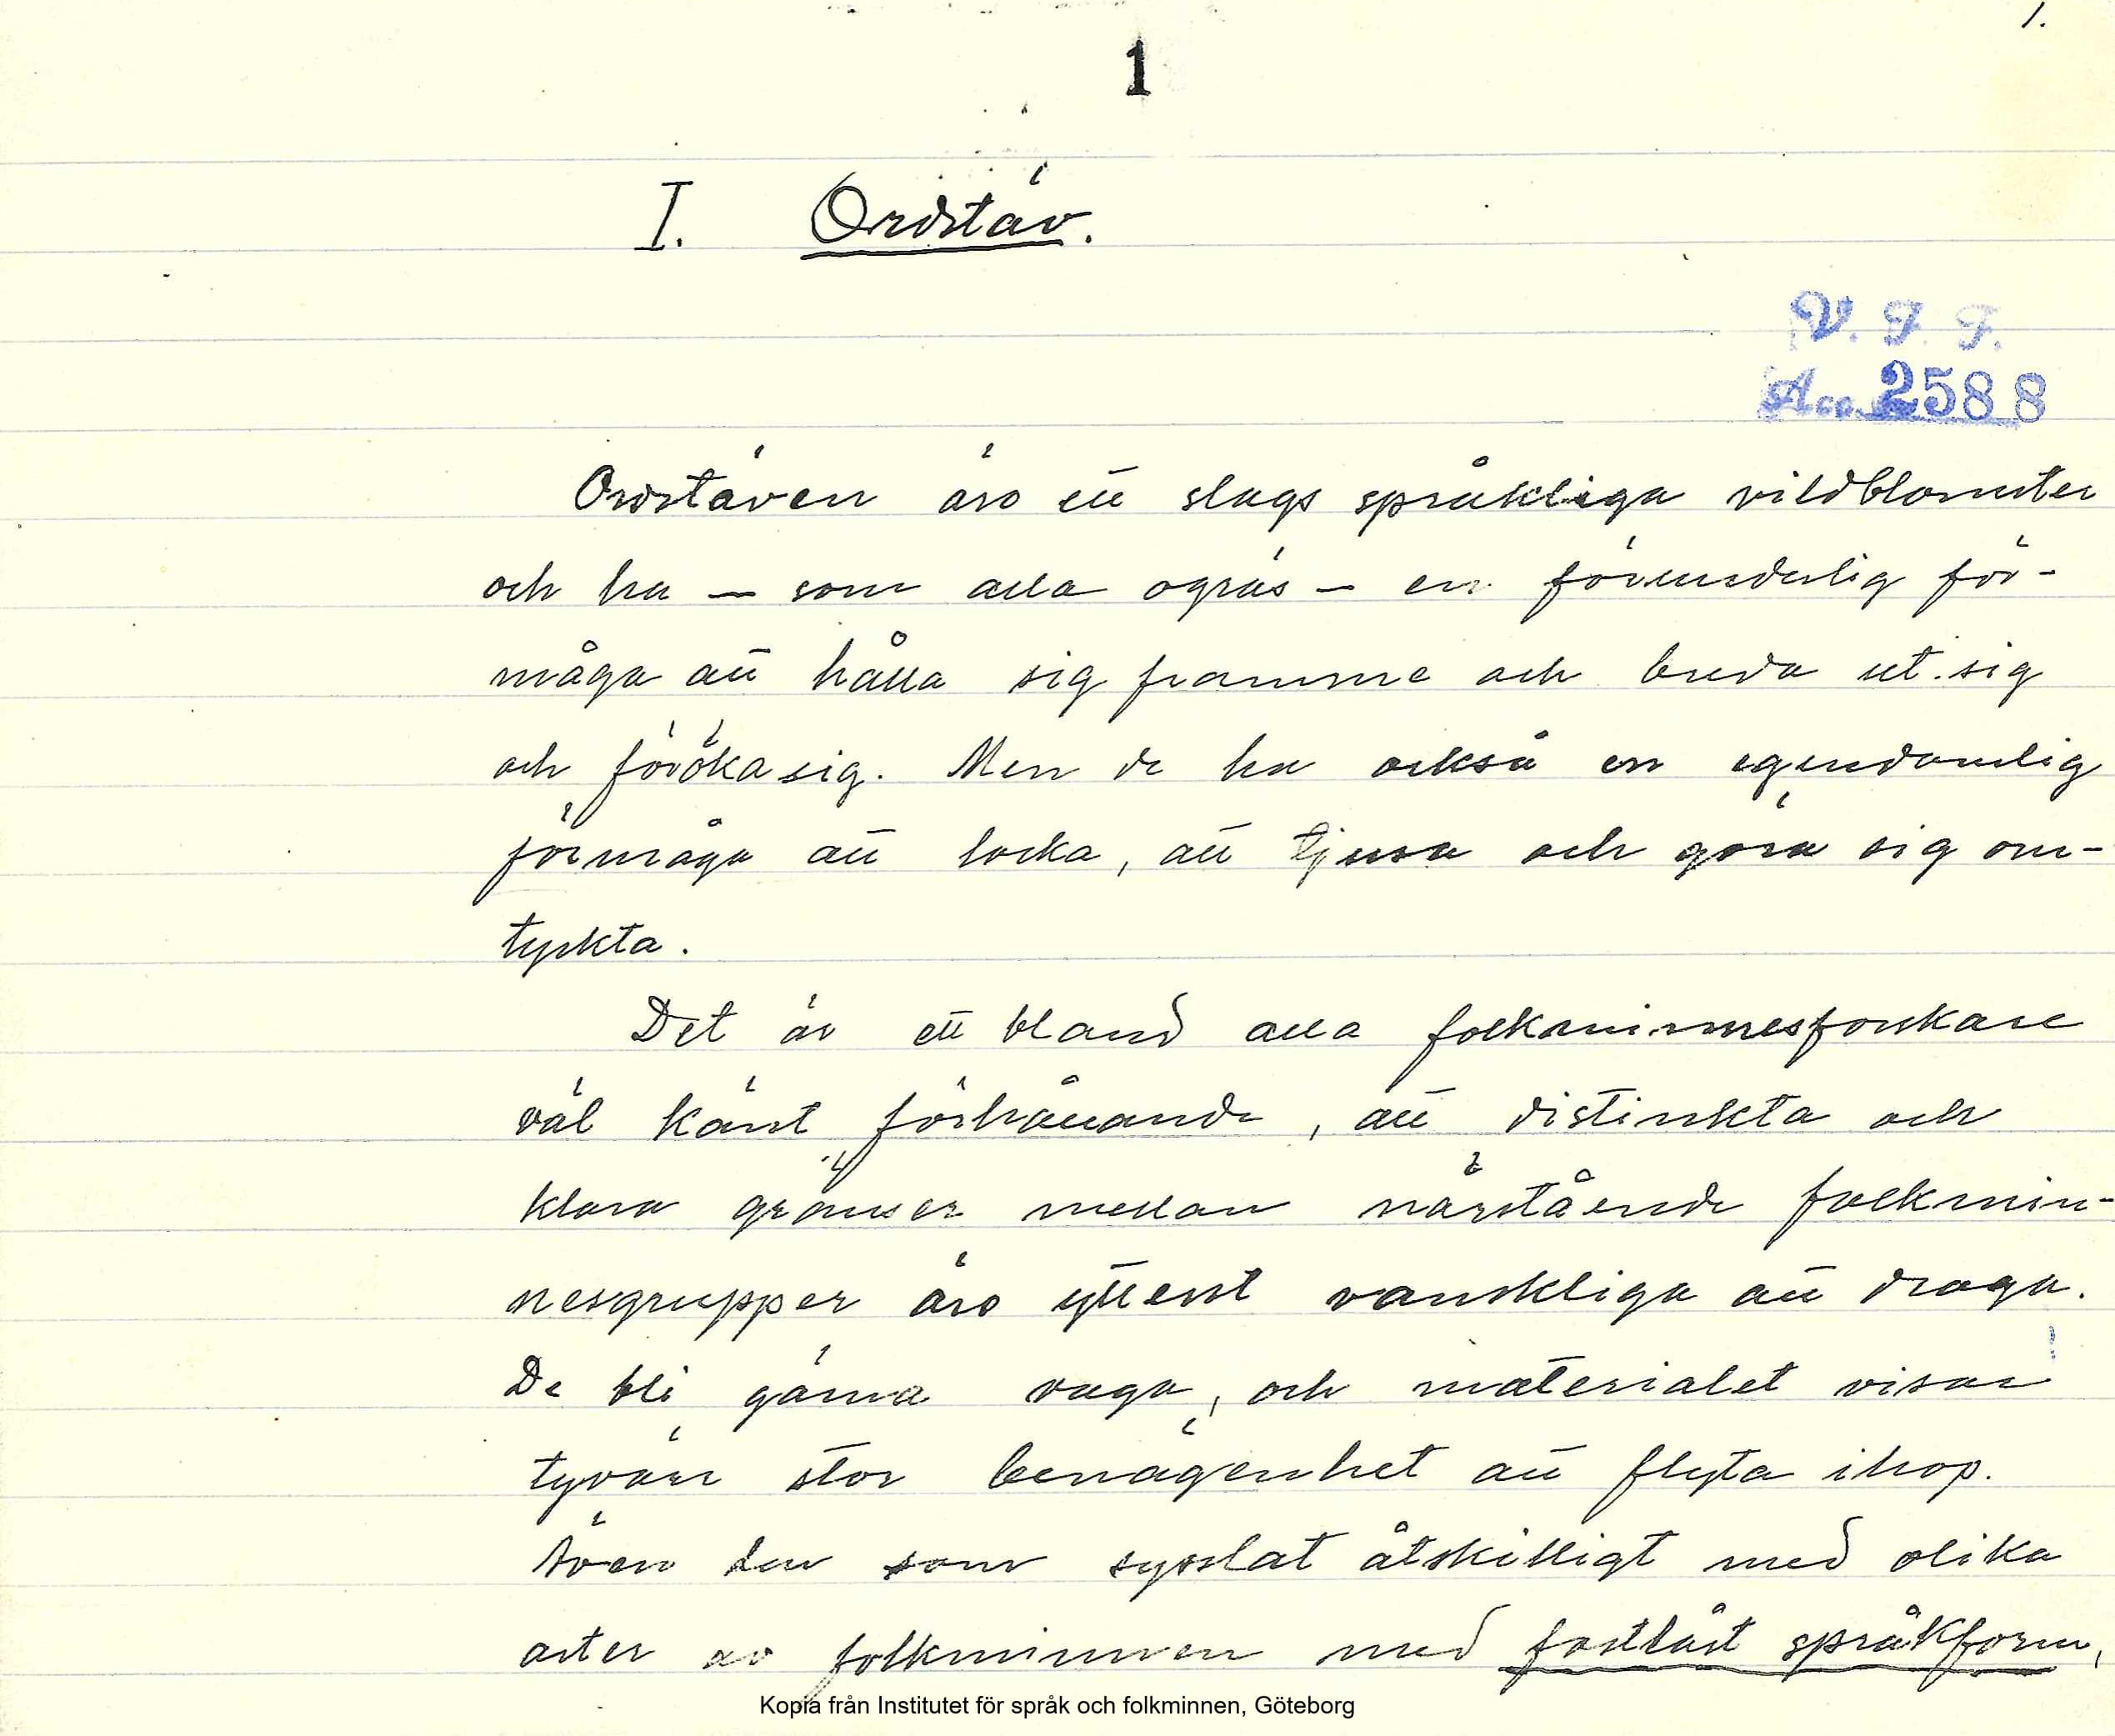 1.
1
I. Ordstäv.
V. F. F.
Acc. 2588
Ordstäven äro ett slags språkliga vildblomster
och ha – som alla ogräs – en förunderlig för-
måga att hålla sig framme och breda ut sig
och föröka sig. Men de ha också en egendomlig
förmåga att locka, att tjusa och göra sig om-
tyckta.
Det är ett bland alla folkminnesforskare
väl känt förhållande, att distinkta och
klara gränser mellan närstående folkmin-
nesgrupper äro ytterst vanskliga att draga.
De bli gärna vaga, och materialet visar
tyvärr stor benägenhet att flyta ihop.
Även den som sysslat åtskilligt med olika
arter av folkminnen med fastlåst språkform,
Kopia från Institutet för språk och folkminnen, Göteborg